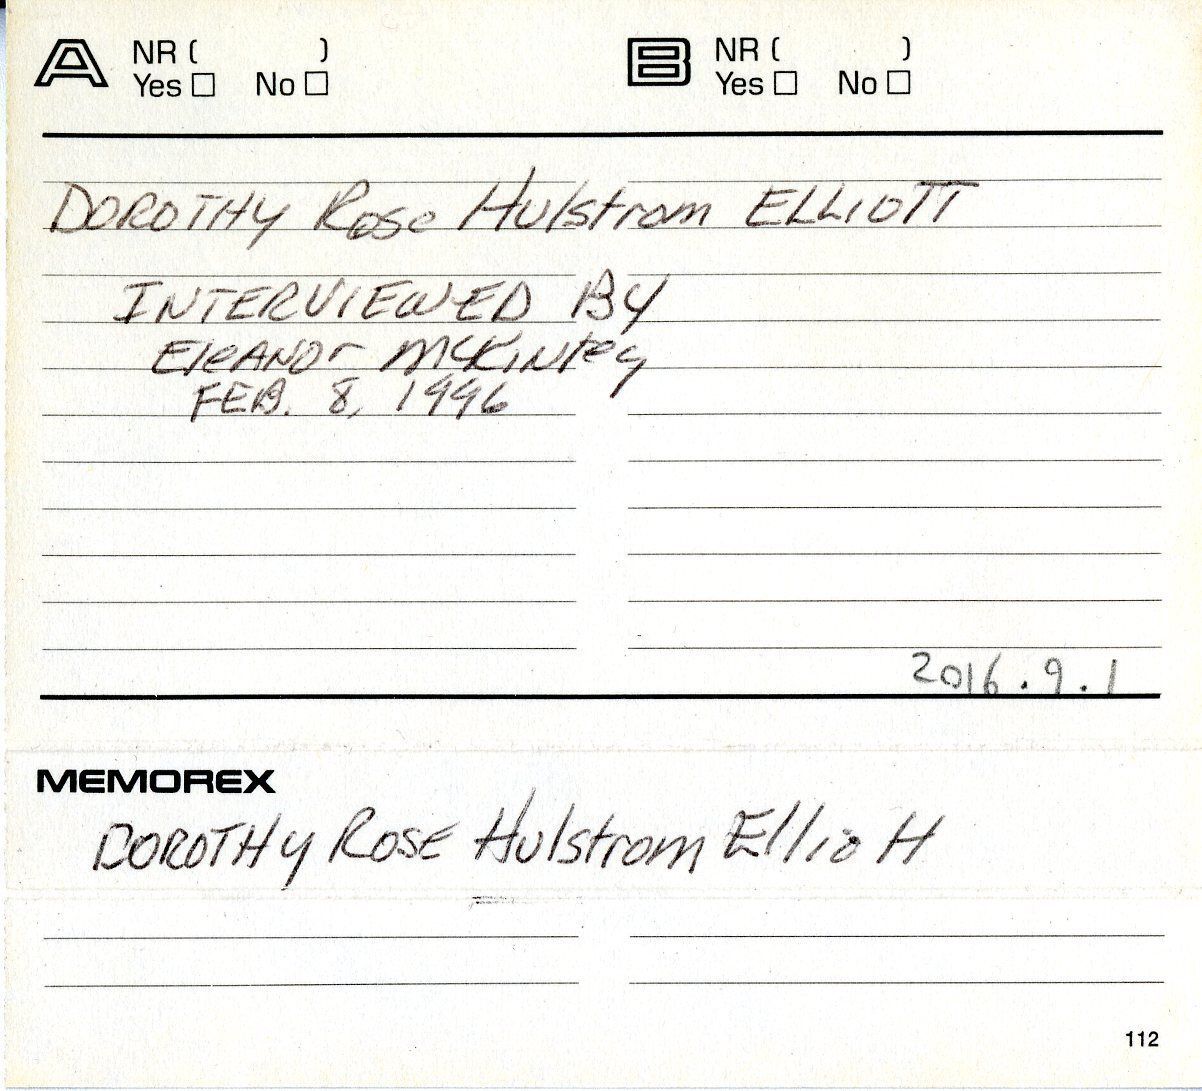 A NR ( ) B NR ( )
Yes □ No □ Yes □ No □
DOROTHY Rose Hulstrom ELLIOTT
INTERVIEWED BY
EleANOr McKinley
FEB. 8, 1996
2016.9.1
MEMOREX
DOROTHY ROSE Hulstrom Elliott
112